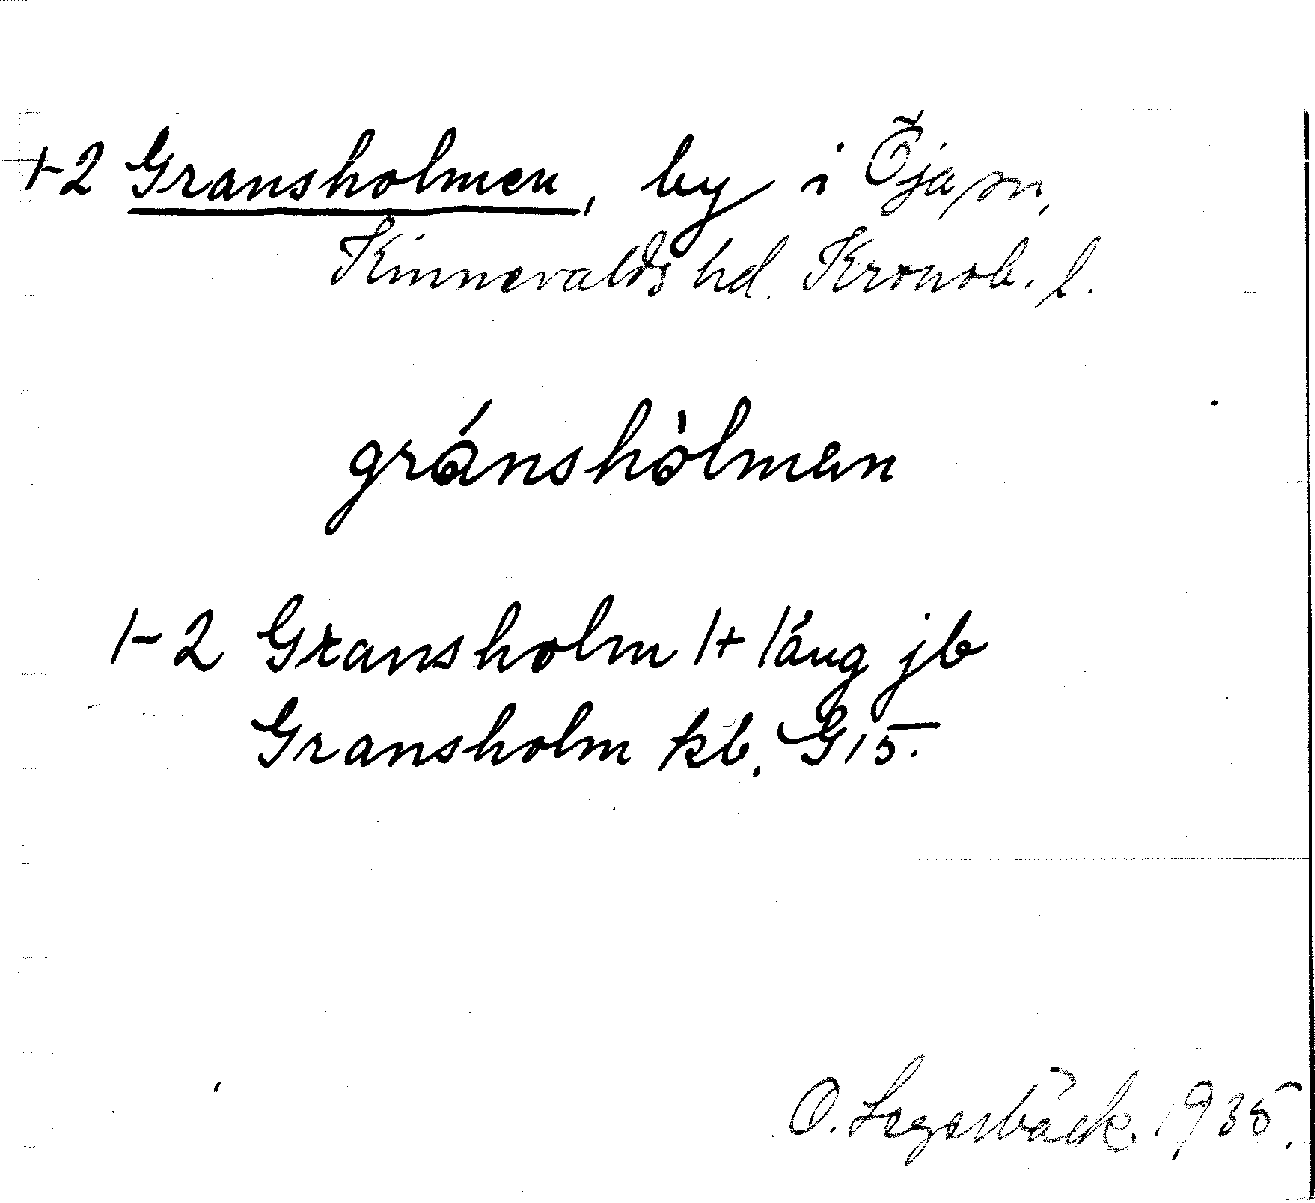 1-2 Gransholmen, by i Öja sn,
Kinnevalds hd. Kronob. l.
gránshòlmen
1-2 Gransholm 1+ 1áug jb
Gransholm kb. G15.
O. Legerbäck 1935.